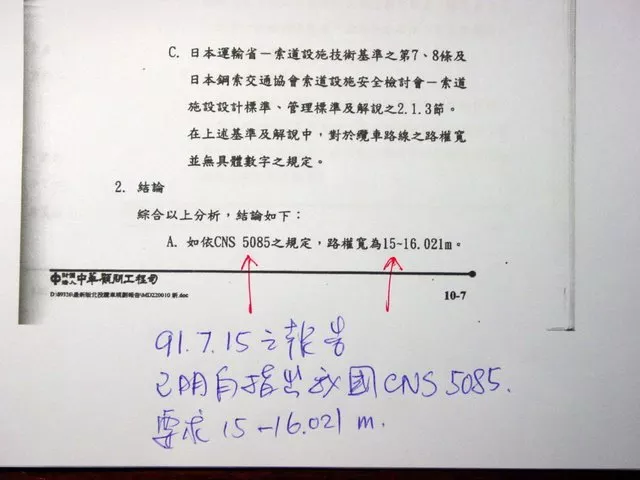 C. 日本運輸省－索道設施技術基準之第7、8條及
日本鋼索交通協會索道設施安全檢討會－索道
施設設計標準、管理標準及解說之2.1.3節。
在上述基準及解說中，對於纜車路線之路權寬
並無具體數字之規定。
2. 結論
綜合以上分析，結論如下：
A. 如依CNS 5085之規定，路權寬為15~16.021m。
財團法人中華顧問工程司
10-7
91.7.15之報告
已明白指出我國CNS 5085.
要求15-16.021 m.